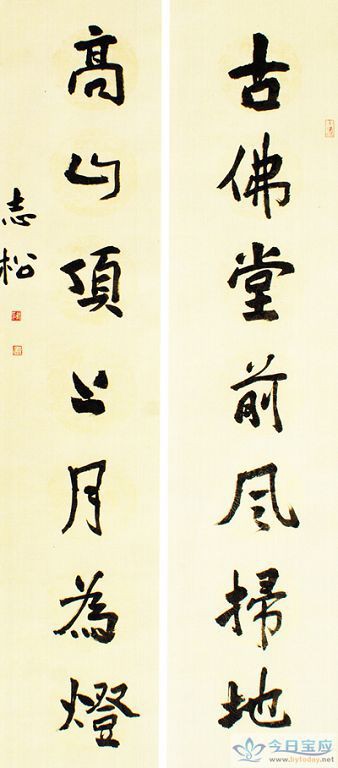 古佛堂前风掃地
高山頂上月為燈
志松
今日宝应
www.liytoday.net